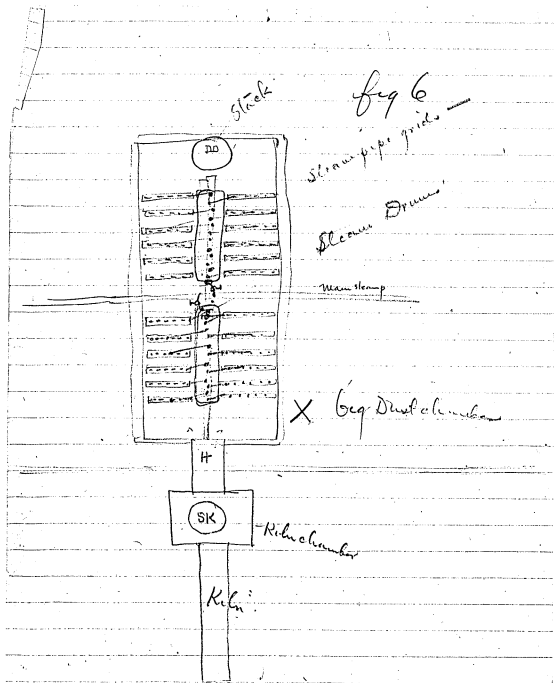 Stack
fig 6
Steam pipe grids
DD
Steam Drums
Main steam p
X Beg Dust chamber
H
SK
Kiln chamber
Kiln